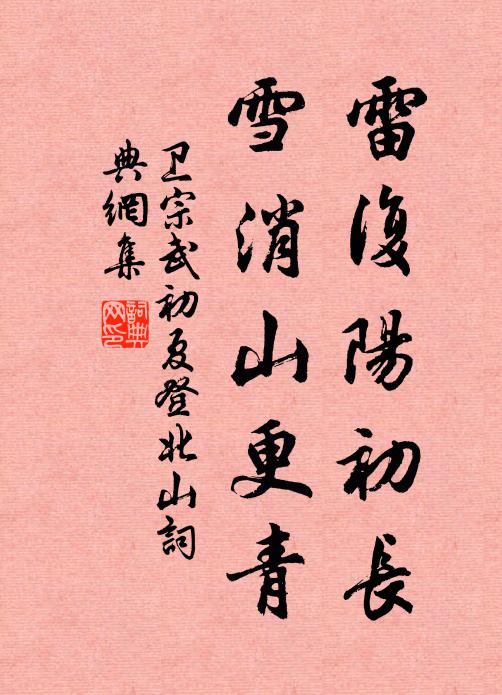 雷復陽初長
雪消山更青
卫宗武初夏登北山詞
典網集
詞典
网印